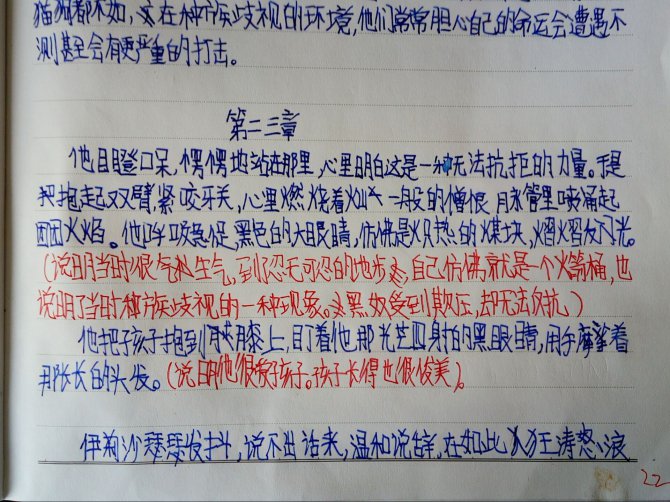 猫狗都不如，这在种族歧视的环境，他们常常担心自己的命运会遭遇不
测甚至会有更严重的打击。
第二三章
他目瞪口呆，愣愣地站在那里，心里明白这是一种无法抗拒的力量。于是
把抱起双臂紧咬牙关，心里燃烧着火一般的憎恨，胸管里喷涌起
团团火焰。他呼吸急促，黑色的大眼睛，仿佛是火热的煤块，熠熠闪光。
（说明当时很气松生气，到了忍无可忍的地步，自己仿佛就是一个火药桶，也
说明了当时种族歧视的一种现象。这黑奴受到欺压，却无法反抗）
他把孩子抱到膝上，盯着他那光芒四射的黑眼睛，用手摩挲着
那长长的头发。（说明他很爱孩子。孩子长得也很俊美）。
伊莉沙瑟瑟发抖，说不出话来，温和说辞，在如此人狂涛怒浪
22